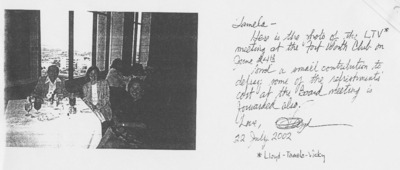 Tamela -
Here is the photo of the LTV*
meeting at the Fort Worth Club on
June
And a small contribution to
defray some of the refreshments
cost at the Board meeting is
forwarded also. -
Love,
22 July 2002
* Lloyd - Tamela - Vicky